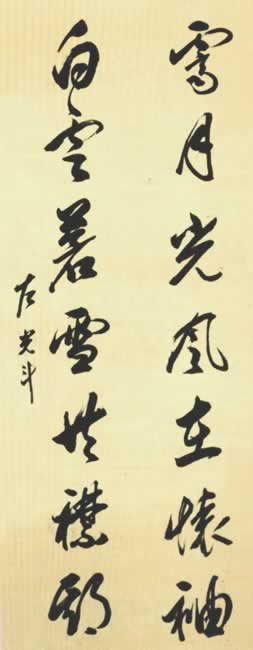 霽月光風在懷袖
白雲蒼雪共襟期
左光斗